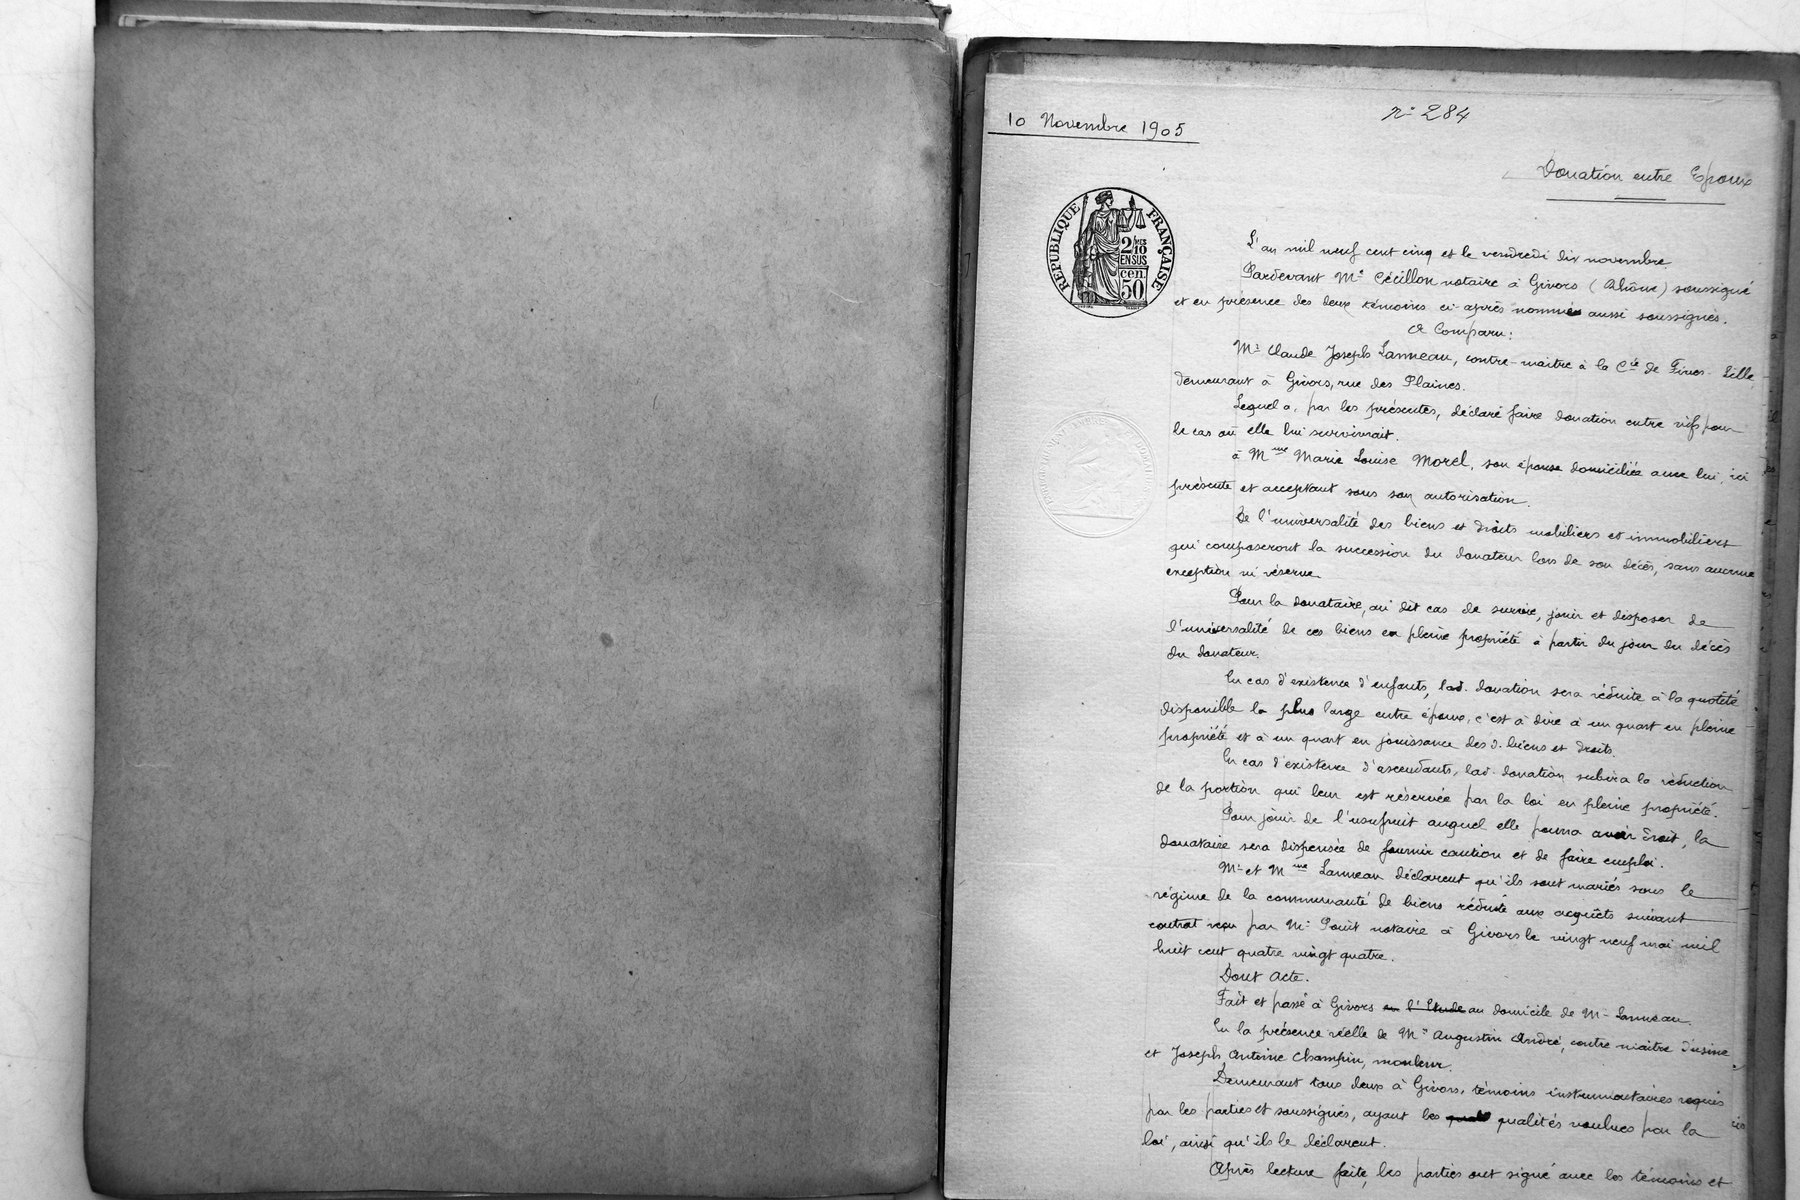 10 Novembre 1905
n° 284
Donation entre Epoux
RÉPUBLIQUE FRANÇAISE
2/10
EN SUS
50 cen.
L'an mil neuf cent cinq et le vendredi dix novembre
Pardevant Me Cécillon notaire à Givors (Rhône) soussigné
et en présence des deux témoins ci-après nommés aussi soussignés.
A Comparu:
Mr Claude Joseph Lanneau, contre-maitre à la Cie de Fives-Lille
demeurant à Givors, rue des Plaines.
Lequel a, par les présentes, déclaré faire donation entre vifs pour
le cas où elle lui survivrait.
à Mme Marie Louise Morel, son épouse domiciliée avec lui, ici
présente et acceptant sous son autorisation.
De l'universalité des biens et droits mobiliers et immobiliers
qui composeront la succession du donateur lors de son décès, sans aucune
exception ni réserve
Pour la donataire, au dit cas de survie, jouir et disposer de
l'universalité de ces biens en pleine propriété à partir du jour du décès
du donateur.
En cas d'existence d'enfants, lad. donation sera réduite à la quotité
disponible la plus large entre époux, c'est à dire à un quart en pleine
propriété et à un quart en jouissance des d. biens et droits.
En cas d'existence d'ascendants, lad. donation subira la réduction
de la portion qui leur est réservée par la loi en pleine propriété.
Pour jouir de l'usufruit auquel elle pourra avoir droit, la
donataire sera dispensée de fournir caution et de faire emploi.
Mr et Mme Lanneau déclarent qu'ils sont mariés sous le
régime de la communauté de biens réduite aux acquêts suivant
contrat reçu par Me Pouit notaire à Givors le vingt neuf mai mil
huit cent quatre vingt quatre.
Dont Acte.
Fait et passé à Givors en l'Etude au domicile de Mr Lanneau.
En la présence réelle de Mrs Augustin André, contre maitre d'usine
et Joseph Antoine Champin, mouleur.
Demeurant tous deux à Givors, témoins instrumentaires requis
par les parties et soussignés, ayant les qualités voulues par la
loi, ainsi qu'ils le déclarent.
Après lecture faite, les parties ont signé avec les témoins et